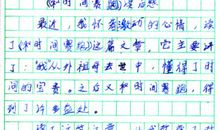 《和时间赛跑》读后感
最近，我怀着激动的心情，读
了《和时间赛跑》这篇文章。它主要讲
了：“我”从外祖母去世中，懂得了时
间的宝贵。之后又和时间赛跑，得
到了许多益处。